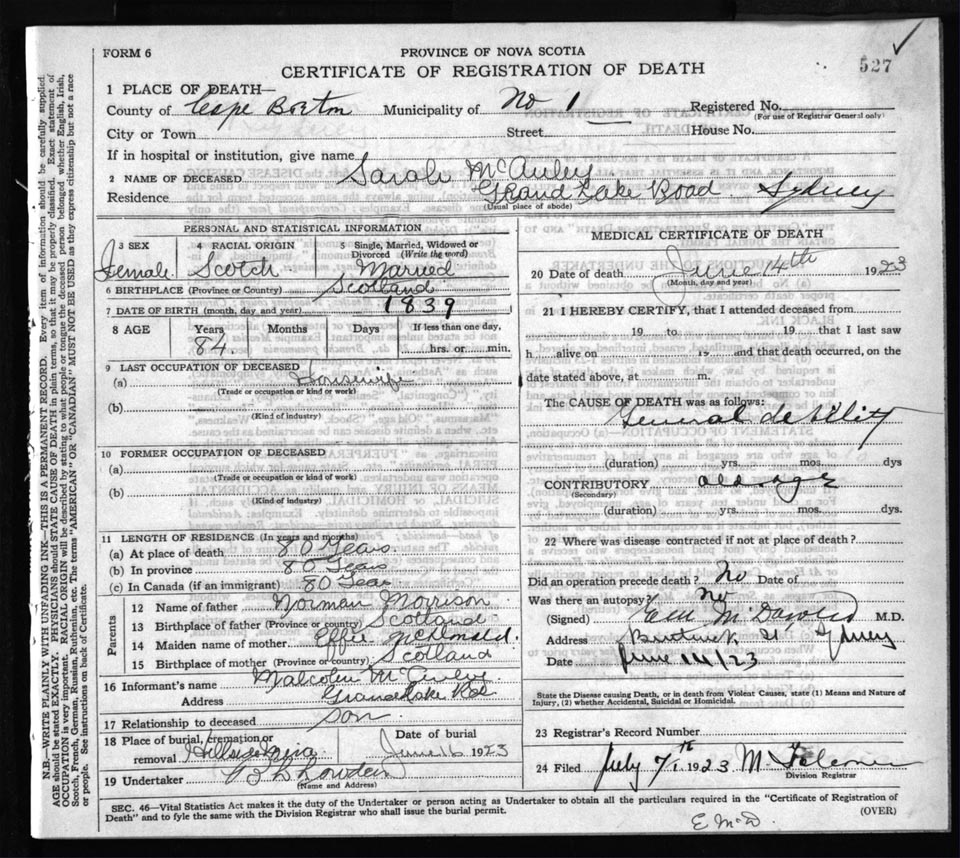 FORM 6
PROVINCE OF NOVA SCOTIA
CERTIFICATE OF REGISTRATION OF DEATH
527
1 PLACE OF DEATH—
County of Cape Breton Municipality of No 1 Registered No.
(For use of Registrar General only)
City or Town Street House No.
If in hospital or institution, give name
2 NAME OF DECEASED Sarah McAuley
Residence Grand Lake Road Sydney
(Usual place of abode)
PERSONAL AND STATISTICAL INFORMATION
3 SEX 4 RACIAL ORIGIN 5 Single, Married, Widowed or Divorced (Write the word)
Female Scotch Married
6 BIRTHPLACE (Province or Country) Scotland
7 DATE OF BIRTH (month, day and year) 1839
8 AGE Years Months Days If less than one day,
84 hrs. or min.
9 LAST OCCUPATION OF DECEASED
(a) Housewife
(Trade or occupation or kind or work)
(b)
(Kind of industry)
10 FORMER OCCUPATION OF DECEASED
(a)
(Trade or occupation or kind of work)
(b)
(Kind of industry)
11 LENGTH OF RESIDENCE (In years and months)
(a) At place of death 80 Years
(b) In province 80 Years
(c) In Canada (if an immigrant) 80 Years
Parents
12 Name of father Norman Morrison
13 Birthplace of father (Province or country) Scotland
14 Maiden name of mother Effie McDonald
15 Birthplace of mother (Province or country) Scotland
16 Informant's name Malcolm
Address Grand Lake Rd
17 Relationship to deceased son
18 Place of burial, cremation or removal Date of burial
June 16 1923
19 Undertaker
(Name and Address)
MEDICAL CERTIFICATE OF DEATH
20 Date of death June 14th 1923
(Month, day and year)
21 I HEREBY CERTIFY, that I attended deceased from
19 to 19 that I last saw
h alive on 19 and that death occurred, on the
date stated above, at m.
The CAUSE OF DEATH was as follows:
General debility
(duration) yrs. mos. dys
CONTRIBUTORY old age
(Secondary)
(duration) yrs. mos. dys.
22 Where was disease contracted if not at place of death?
Did an operation precede death? No Date of
Was there an autopsy? No
(Signed) M.D.
Address Sydney
Date June 14/23
State the Disease causing Death, or in death from Violent Causes, state (1) Means and Nature of
Injury, (2) whether Accidental, Suicidal or Homicidal.
23 Registrar's Record Number
24 Filed July 7th 1923
Division Registrar
SEC. 46—Vital Statistics Act makes it the duty of the Undertaker or person acting as Undertaker to obtain all the particulars required in the "Certificate of Registration of
Death" and to fyle the same with the Division Registrar who shall issue the burial permit.
(OVER)
E McD.
N.B—WRITE PLAINLY WITH UNFADING INK—THIS IS A PERMANENT RECORD. Every item of information should be carefully supplied
AGE should be stated EXACTLY. PHYSICIANS should STATE CAUSE OF DEATH in plain terms, so that it may be properly classified. Exact statement of
OCCUPATION is very important. RACIAL ORIGIN will be described by stating to what people or tongue the deceased person belonged whether English, Irish,
Scotch, French, German, Russian, Ruthenian, etc. The terms "AMERICAN" or "CANADIAN" MUST NOT BE USED as they express citizenship but not a race
or people. See instructions on back of Certificate.